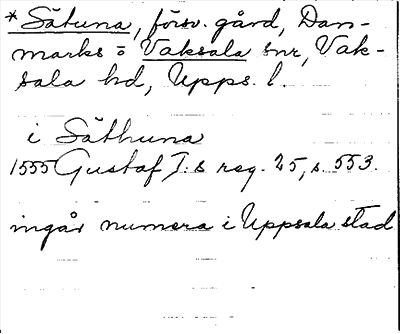 *Såtuna, försv. gård, Dan-
marks o Vaksala snr, Vak-
sala hd, Upps. l.
i Såthuna
1555 Gustaf I:s reg. 25, s. 553.
ingår numera i Uppsala stad